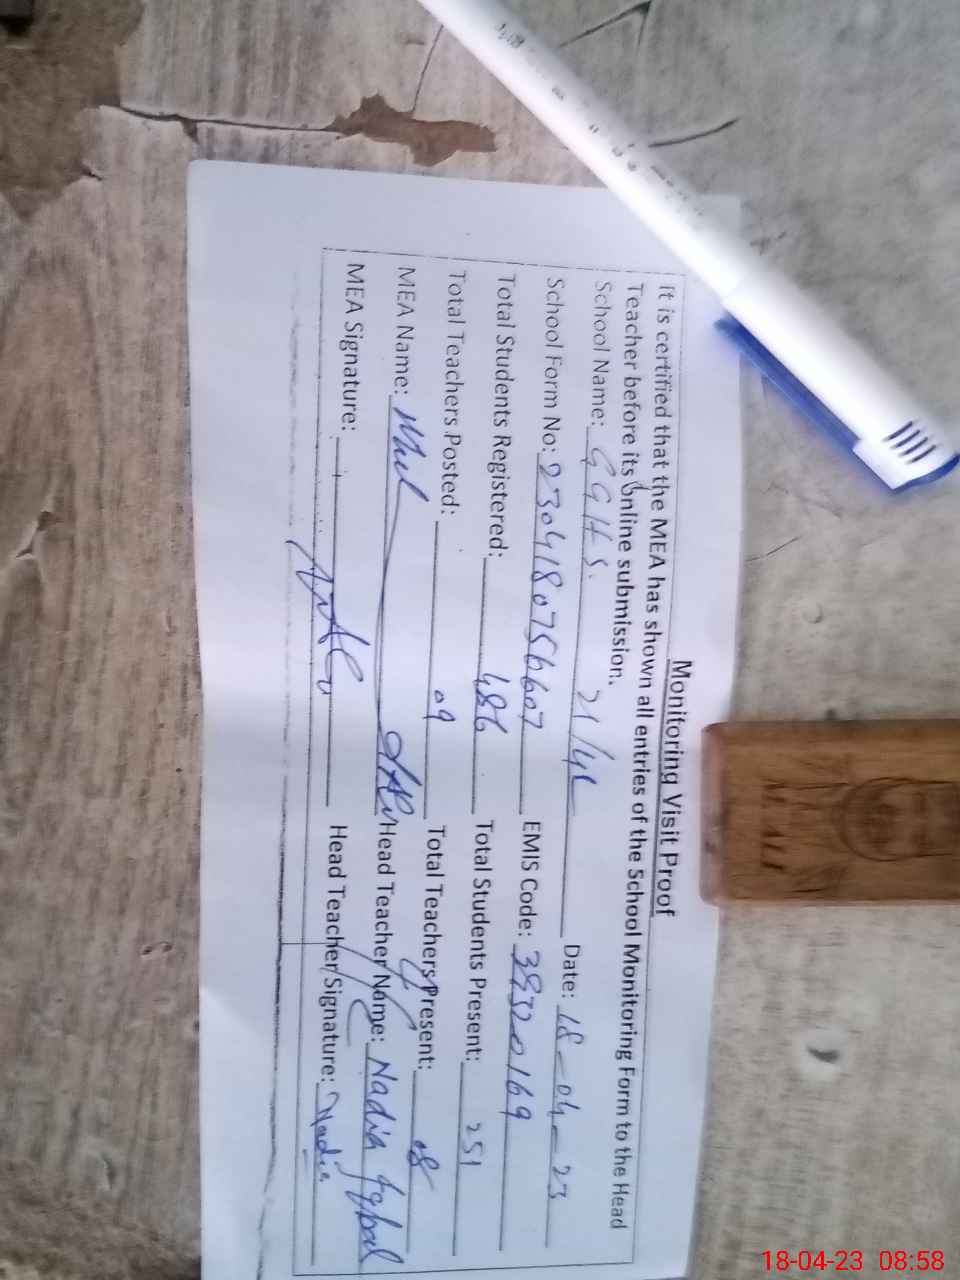 Monitoring Visit Proof
It is certified that the MEA has shown all entries of the School Monitoring Form to the Head
Teacher before its online submission.
School Name: GGHS. 21/4L Date: 18-04-23
School Form No: 2304180756607 EMIS Code: 39320169
Total Students Registered: 486 Total Students Present: 251
Total Teachers Posted: 09 Total Teachers Present: 08
MEA Name: Head Teacher Name: Nadia Iqbal
MEA Signature: Head Teacher Signature: Nadia
18-04-23 08:58